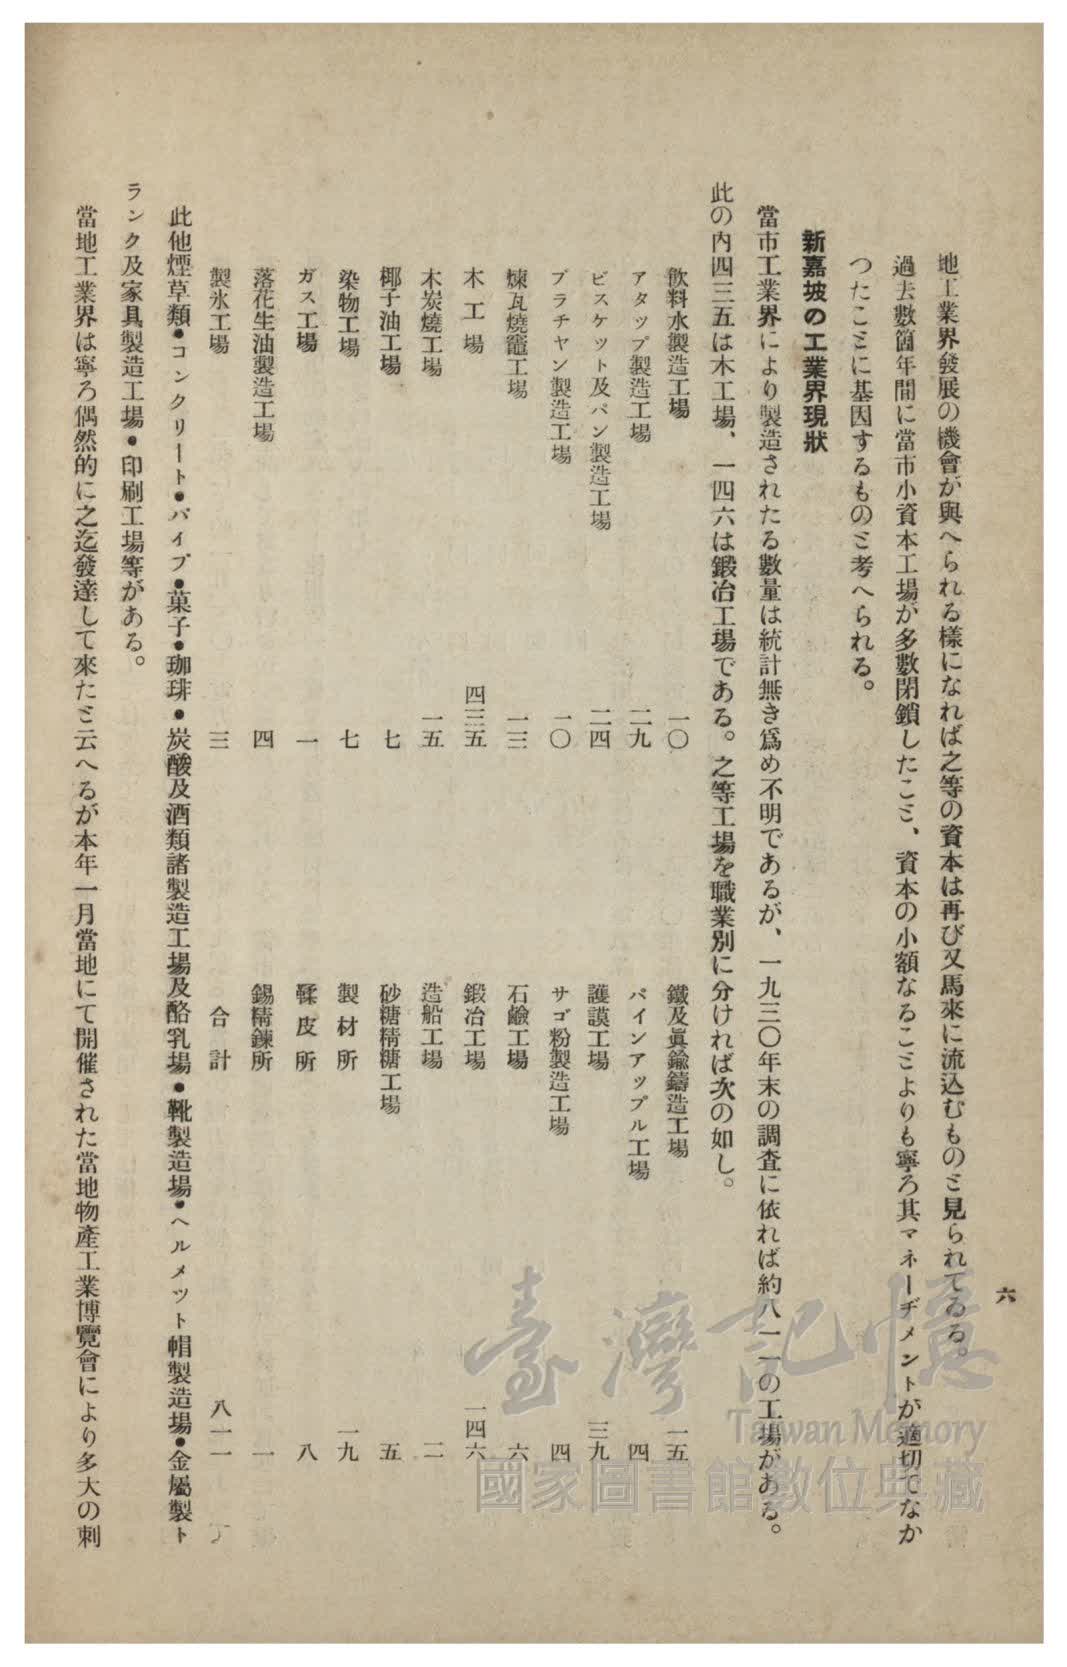 六
地工業界發展の機會が與へられる樣になれば之等の資本は再び又馬來に流込むものと見られてゐる。
過去數箇年間に當市小資本工場が多數閉鎖したこと、資本の小額なることよりも寧ろ其マネーヂメントが適切でなか
つたことに基因するものと考へられる。
新嘉坡の工業界現狀
當市工業界により製造されたる數量は統計無き爲め不明であるが、一九三〇年末の調査に依れば約八一一の工場がある。
此の內四三五は木工場、一四六は鍛冶工場である。之等工場を職業別に分ければ次の如し。
飮料水製造工場 一〇 鐵及眞鍮鑄造工場 一五
アタップ製造工場 二九 パインアップル工場 四
ビスケット及パン製造工場 二四 護謨工場 三九
ブラチヤン製造工場 一〇 サゴ粉製造工場 四
煉瓦燒竈工場 一三 石鹼工場 六
木工場 四三五 鍛冶工場 一四六
木炭燒工場 一五 造船工場 二
椰子油工場 七 砂糖精糖工場 五
染物工場 七 製材所 一九
ガス工場 一 鞣皮所 八
落花生油製造工場 四 錫精鍊所 一
製氷工場 三 合計 八一一
此他煙草類•コンクリート•パイプ•菓子•珈琲•炭酸及酒類諸製造工場及酪乳場•靴製造場•ヘルメット帽製造場•金屬製ト
ランク及家具製造工場•印刷工場等がある。
當地工業界は寧ろ偶然的に之迄發達して來たと云へるが本年一月當地にて開催された當地物產工業博覽會により多大の刺
臺灣記憶
Taiwan Memory
國家圖書館數位典藏